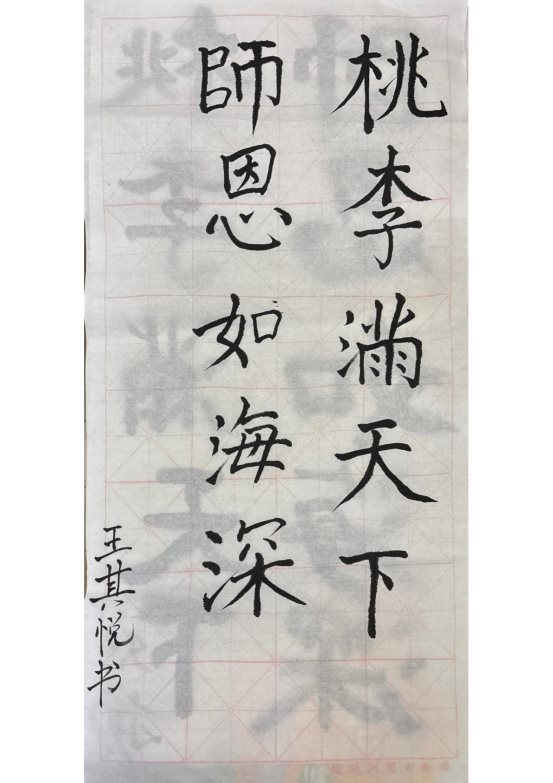 桃李滿天下
師恩如海深
王其悦书